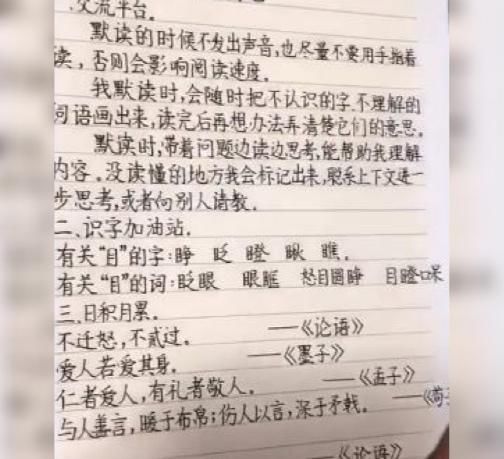 、交流平台。
默读的时候不发出声音,也尽量不要用手指着
读,否则会影响阅读速度。
我默读时,会随时把不认识的字、不理解的
词语画出来,读完后再想办法弄清楚它们的意思。
默读时,带着问题边读边思考,能帮助我理解
内容。没读懂的地方我会标记出来,联系上下文进一
步思考,或者向别人请教。
二、识字加油站。
有关“目”的字:睁 眨 瞪 瞅 瞧。
有关“目”的词:眨眼 眼眶 怒目圆睁 目瞪口呆
三、日积月累。
不迁怒,不贰过。 ——《论语》
爱人若爱其身。 ——《墨子》
仁者爱人,有礼者敬人。 ——《孟子》
与人善言,暖于布帛;伤人以言,深于矛戟。 ——《荀子
——《论语》